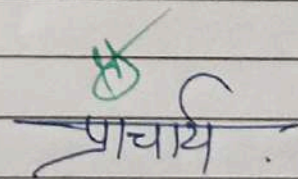 प्राचार्य .